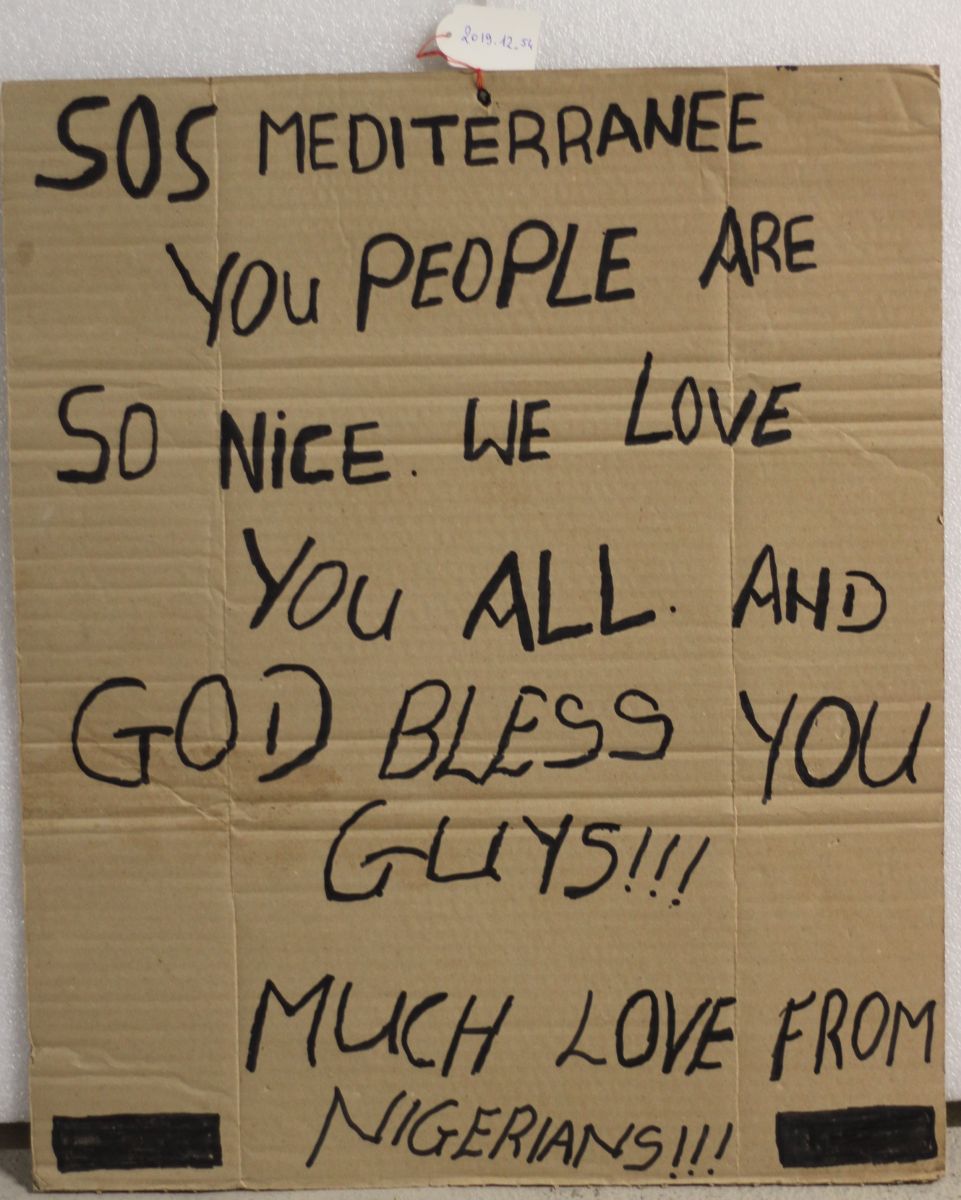 2019.12.54
SOS MEDITERRANEE
YOU PEOPLE ARE
SO NiCE. WE LOVE
YOU ALL. AND
GOD BLESS YOU
GUYS!!!
MUCH LOVE FROM
NIGERIANS!!!